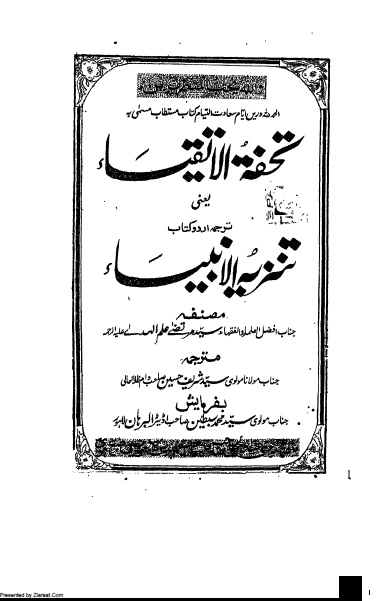 الحمد للہ دریں ایام سعادت التیام کتاب مستطاب مسمیٰ بہ
تحفۃ الاتقیاء
یعنی
ترجمہ اردو کتاب
تنزیہ الانبیاء
مصنفہ
جناب افضل العلماء والفقہاء سید مرتضے علم الہدے علیہ الرحمہ
مترجمہ
جناب مولانا مولوی سید شریف حسین صاحب دام ظلہ العالی
بفرمایش
جناب مولوی سید محمد سبطین صاحب اڈیٹر البرہان لاہور
Presented by Ziaraat.Com